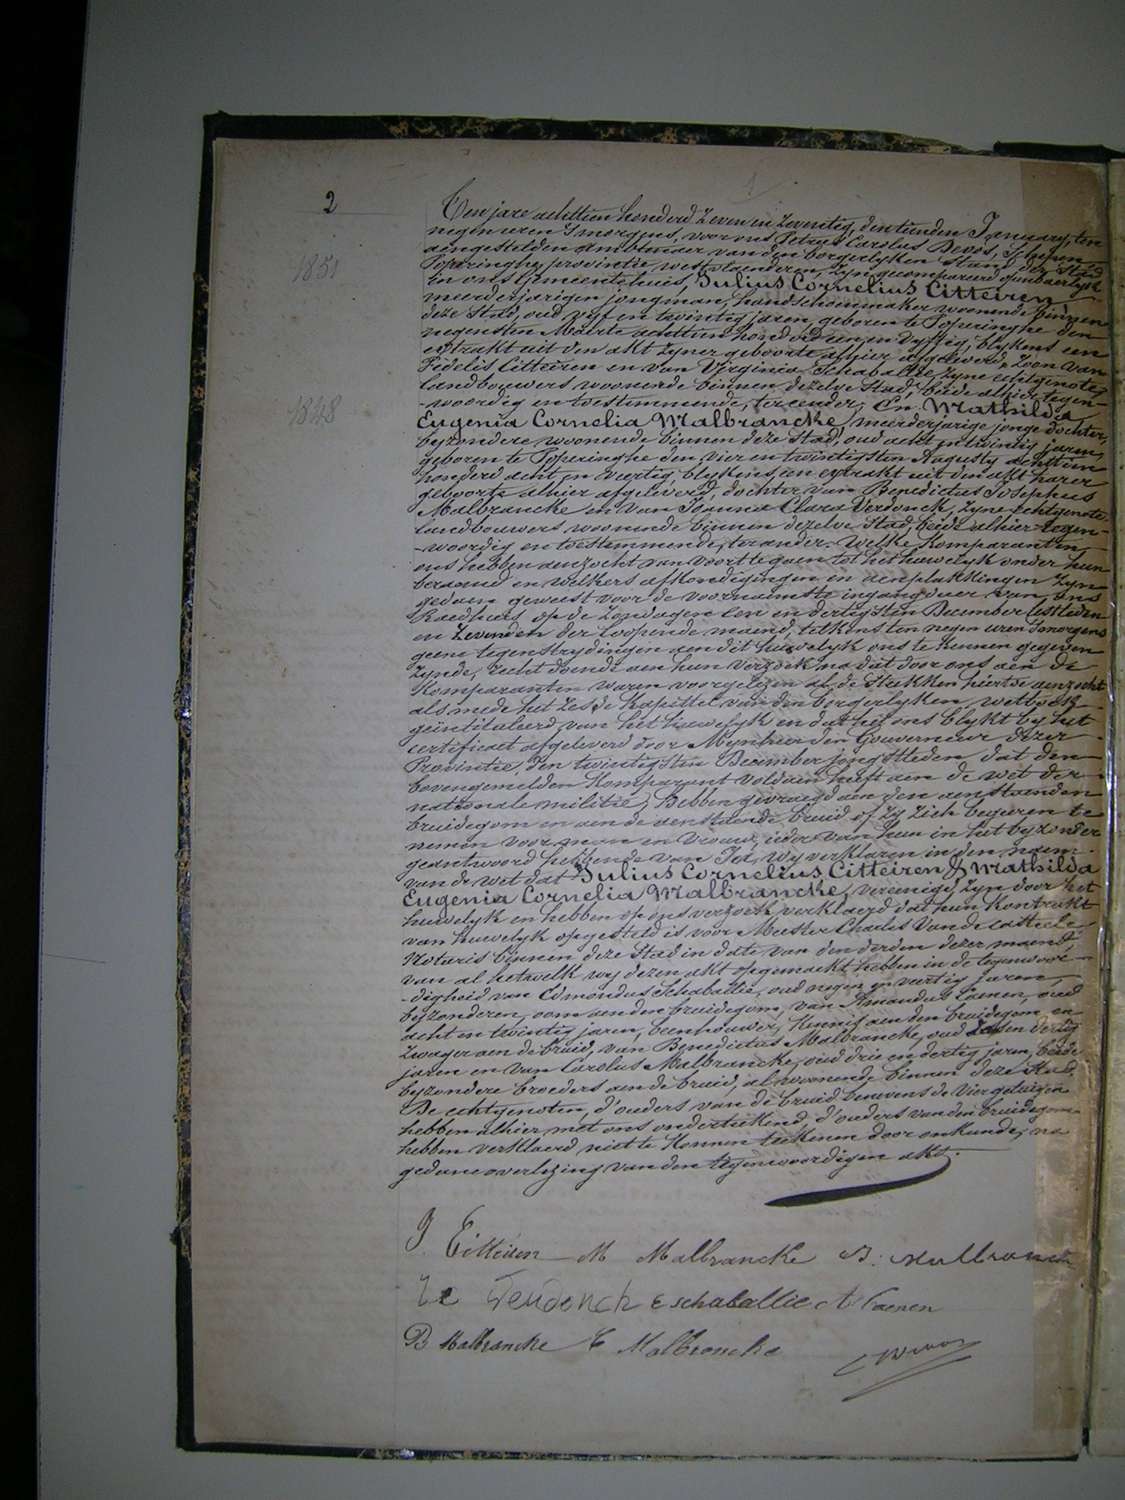 2
1851
1848
Ten jare achttien honderd zeven en zeventig, den tienden January, ten
negen uren 's morgens, voor ons Petrus Carolus Devos, Schepen
aengestelden ambtenaer van den borgerlyken Stand der Stad
Poperinghe, provintie westvlaenderen, zyn gecompareerd openbaerlyk
in ons Gemeentehuis, Julius Cornelius Citteiren,
meerderjarigen jongman, handschoenmaker woonende binnen
deze Stad, oud vyf en twintig jaren, geboren te Poperinghe den
negensten Maerte achttien honderd een en vyftig, blykens een
extrakt uit den akt zyner geboorte alhier afgeleverd, zoon van
Fidelis Citteiren en van Virginia Schabalde zyne echtgenote,
landbouwers woonende binnen dezelve Stad, beide alhier tegen-
-woordig en toestemmende, ter eender; En Mathilda
Eugenia Cornelia Malbrancke, meerderjarige jonge dochter,
byzondere woonende binnen deze Stad, oud acht en twintig jaren,
geboren te Poperinghe den vier en twintigsten Augusty achttien
honderd acht en veertig, blykens een extrakt uit den akt harer
geboorte alhier afgeleverd, dochter van Benedictus Josephus
Malbrancke en van Joanna Clara Verdonck, zyne echtgenote,
landbouwers woonende binnen dezelve Stad, beide alhier tegen-
-woordig en toestemmende, ter ander. Welke Komparanten
ons hebben aenzocht van voort te gaen tot het huwelyk onder hun
beraemd en welkers afkondigingen en aenplakkingen zyn
gedaen geweest voor de voornaemste ingangdeur van ons
Raedhuis op de Zondagen een en dertigsten December lestleden
en zevensten der loopende maend, telkens ten negen uren 's morgens
geene tegenstrydingen aen dit huwelyk ons te kennen gegeven
zynde, recht doende aen hun verzoek na dat door ons aen de
Komparanten waren voorgelezen al de stukken hiertoe aenzocht
als mede het zesde kapittel van den borgerlyken wetboek
geïntitaleerd van het huwelyk en dat het ons blykt by het
certificaet afgeleverd door Mynheer den Gouverneur dezer
Provintie, den twintigsten December jongstleden dat den
bovengemelden Komparant voldaen heeft aen de wet der
nationale militie; Hebben gevraegd aen den aenstaenden
bruidegom en aen de aenstaende bruid of zy zich begeren te
nemen voor man en vrouw, ieder van hun in het byzonder
geantwoord hebbende van Ja, wy verklaren in den naem
van de wet dat Julius Cornelius Citteiren & Mathilda
Eugenia Cornelia Malbrancke, vereenigd zyn door het
huwelyk en hebben op ons verzoek verklaerd dat hun kontrakt
van huwelyk opgesteld is voor Meester Charles Van de casteele
Notaris binnen deze Stad in date van den derden dezer maend,
van al hetwelk wy dezen akt opgemaekt hebben in de tegenwoor-
-digheid van Edmondus Schaballie, oud negen en veertig jaren,
byzonderen, oom aen den bruidegom, van Amandus Coenen, oud
acht en twintig jaren, beenhouwer, kennis aen den bruidegom en
zwager aen de bruid, van Benedictus Malbrancke, oud en dertig
jaren en van Carolus Malbrancke, oud drie en dertig jaren, beide
byzondere broeders aen de bruid, al woonende binnen deze Stad.
De echtgenoten, d'ouders van de bruid benevens de vier getuigen
hebben alhier met ons onderteekend, d'ouders van den bruidegom
hebben verklaerd niet te konnen teekenen door onkunde; na
gedane overlezing van den tegenwoordigen akt.
J. Citteiren M Malbrancke B. Malbranck
E schaballie A Coenen
B Malbrancke C Malbrancke CDevos